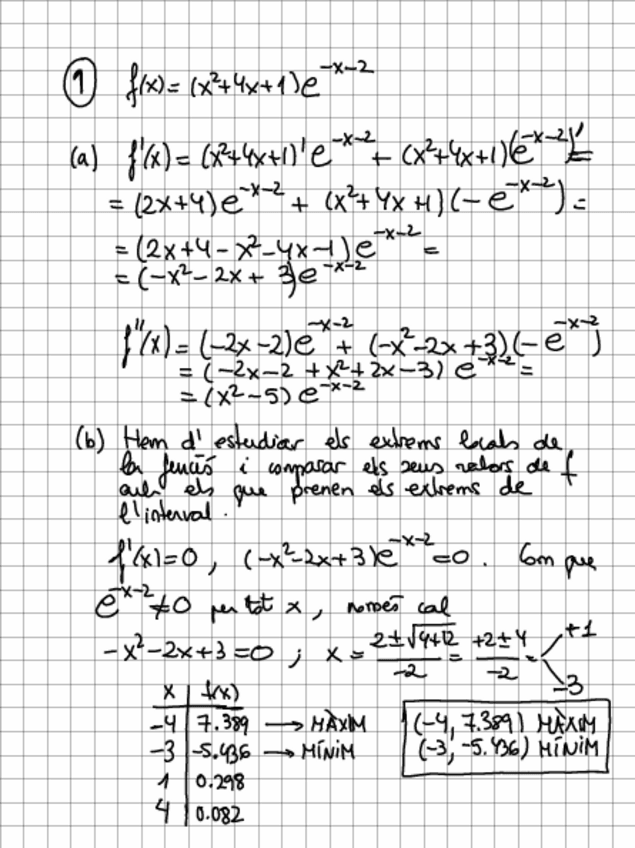 1 f(x) = (x²+4x+1)e^{-x-2}
(a) f'(x) = (x²+4x+1)' e^{-x-2} + (x²+4x+1)(e^{-x-2})' =
= (2x+4)e^{-x-2} + (x²+4x+1)(-e^{-x-2}) =
= (2x+4-x²-4x-1)e^{-x-2} =
= (-x²-2x+3)e^{-x-2}
f''(x) = (-2x-2)e^{-x-2} + (-x²-2x+3)(-e^{-x-2})
= (-2x-2+x²+2x-3) e^{-x-2} =
= (x²-5) e^{-x-2}
(b) Hem d'estudiar els extrems locals de
la funció i comparar els seus valors de f
amb els que prenen els extrems de
l'interval.
f'(x)=0, (-x²-2x+3)e^{-x-2}=0. Com que
e^{-x-2}≠0 per tot x, només cal
-x²-2x+3=0; x = \frac{2±√(4+12)}{-2} = \frac{+2±4}{-2} = +1
-3
x f(x)
-4 7.389 → MÀXIM (-4, 7.389) MÀXIM
-3 -5.436 → MÍNIM (-3, -5.436) MÍNIM
1 0.298
4 0.082